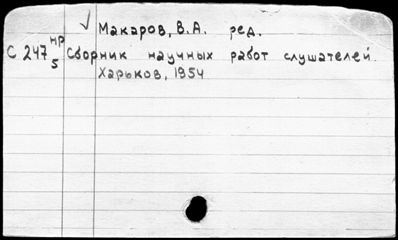 ✓ Макаров, В.А. ред.
С 247 нр 5 Сборник научных работ слушателей.
Харьков, 1954